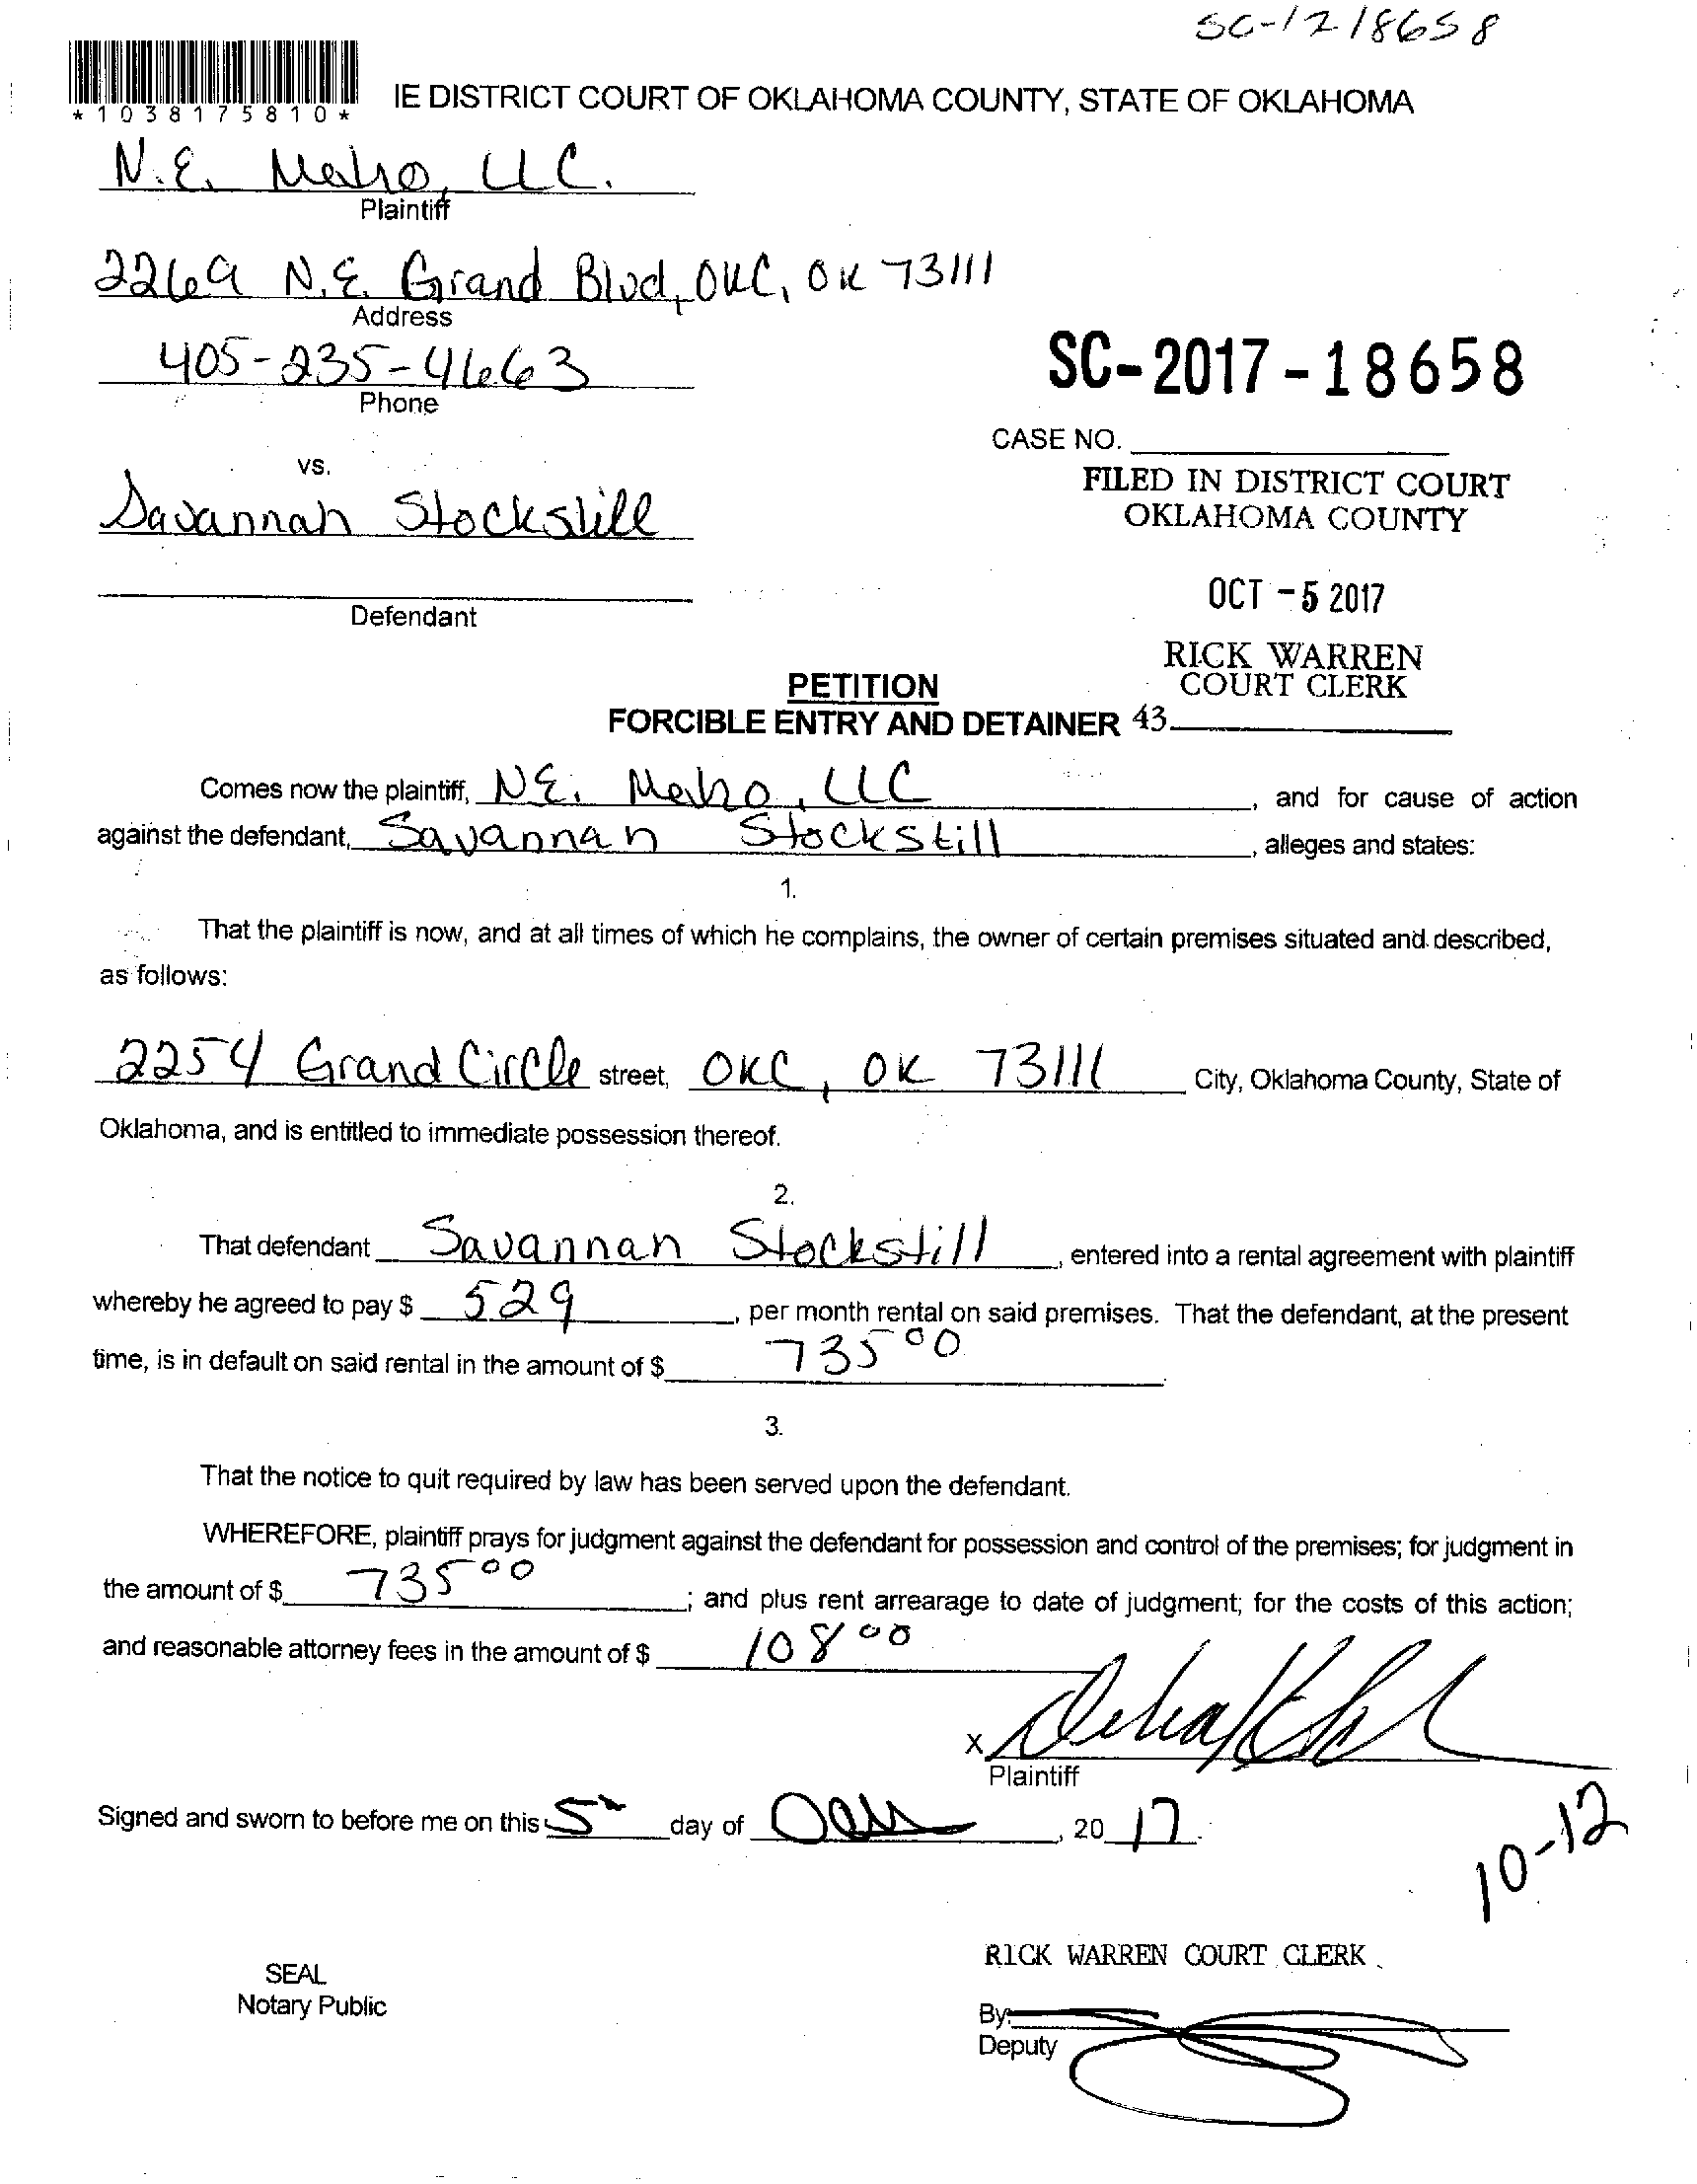 SC-1218658
*1038175810*
IE DISTRICT COURT OF OKLAHOMA COUNTY, STATE OF OKLAHOMA
N.E. Metro, LLC.
Plaintiff
2269 N.E. Grand Blvd, OKC, OK 73111
Address
405-235-4663
Phone
SC-2017-18658
CASE NO.
vs.
FILED IN DISTRICT COURT
OKLAHOMA COUNTY
Savannah Stockstill
OCT -5 2017
Defendant
RICK WARREN
COURT CLERK
PETITION
FORCIBLE ENTRY AND DETAINER 43
Comes now the plaintiff, N.E. Metro, LLC, and for cause of action
against the defendant, Savannah Stockstill, alleges and states:
1.
That the plaintiff is now, and at all times of which he complains, the owner of certain premises situated and described,
as follows:
2254 Grand Circle street, OKC, OK 73111 City, Oklahoma County, State of
Oklahoma, and is entitled to immediate possession thereof.
2.
That defendant Savannah Stockstill, entered into a rental agreement with plaintiff
whereby he agreed to pay $ 529, per month rental on said premises. That the defendant, at the present
time, is in default on said rental in the amount of $ 735 00
3.
That the notice to quit required by law has been served upon the defendant.
WHEREFORE, plaintiff prays for judgment against the defendant for possession and control of the premises; for judgment in
the amount of $ 735 00; and plus rent arrearage to date of judgment; for the costs of this action;
and reasonable attorney fees in the amount of $ 108 00
X
Plaintiff
Signed and sworn to before me on this 5 day of, 20 17.
10-12
RICK WARREN COURT CLERK
SEAL
Notary Public
By:
Deputy